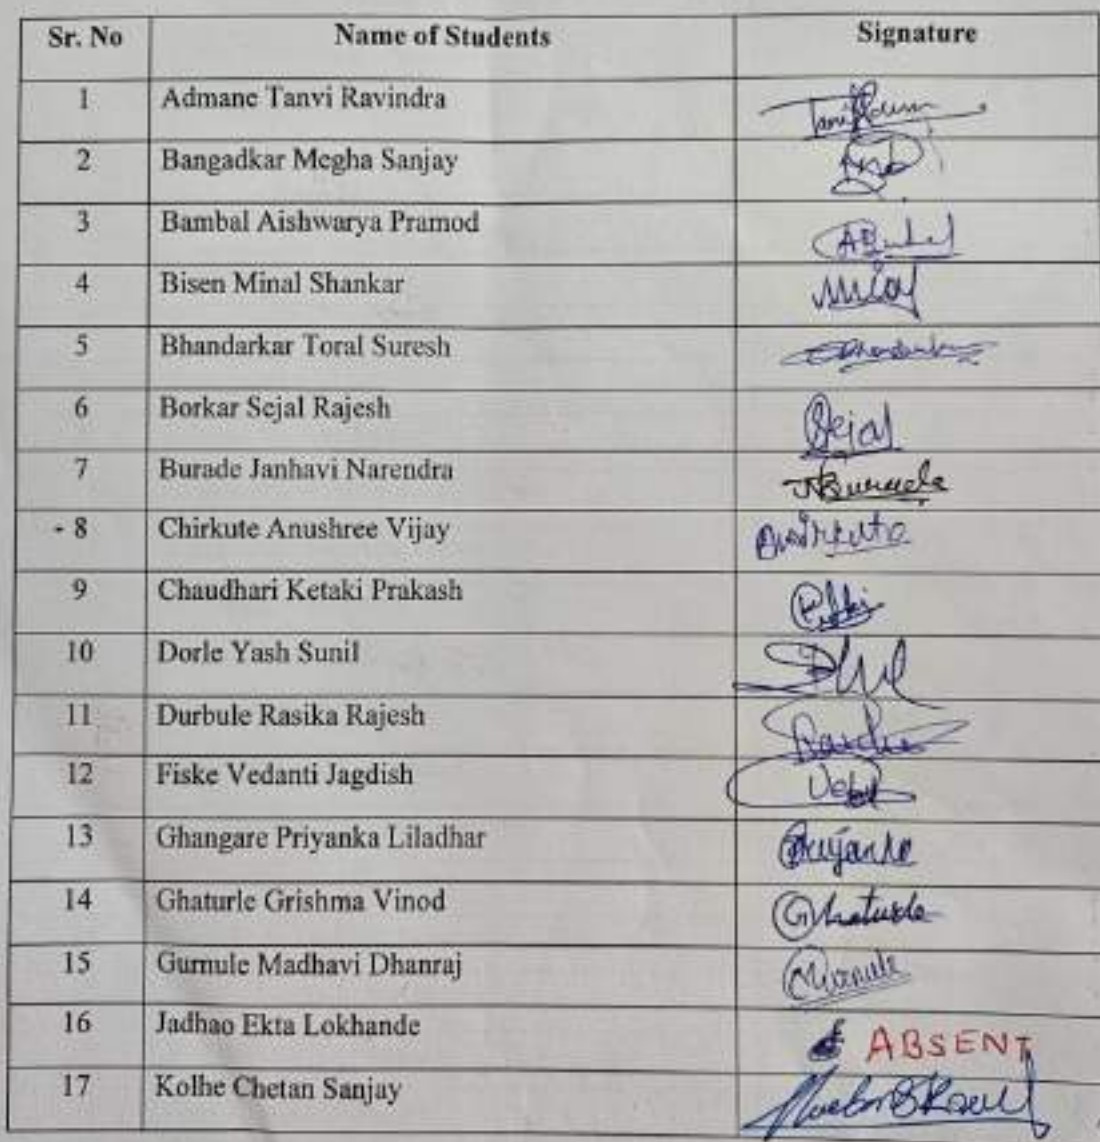 Sr. No Name of Students Signature
1 Admane Tanvi Ravindra
2 Bangadkar Megha Sanjay
3 Bambal Aishwarya Pramod
4 Bisen Minal Shankar
5 Bhandarkar Toral Suresh
6 Borkar Sejal Rajesh Sejal
7 Burade Janhavi Narendra
- 8 Chirkute Anushree Vijay
9 Chaudhari Ketaki Prakash
10 Dorle Yash Sunil
11 Durbule Rasika Rajesh
12 Fiske Vedanti Jagdish
13 Ghangare Priyanka Liladhar Priyanka
14 Ghaturle Grishma Vinod Ghaturle
15 Gurnule Madhavi Dhanraj
16 Jadhao Ekta Lokhande ABSENT
17 Kolhe Chetan Sanjay